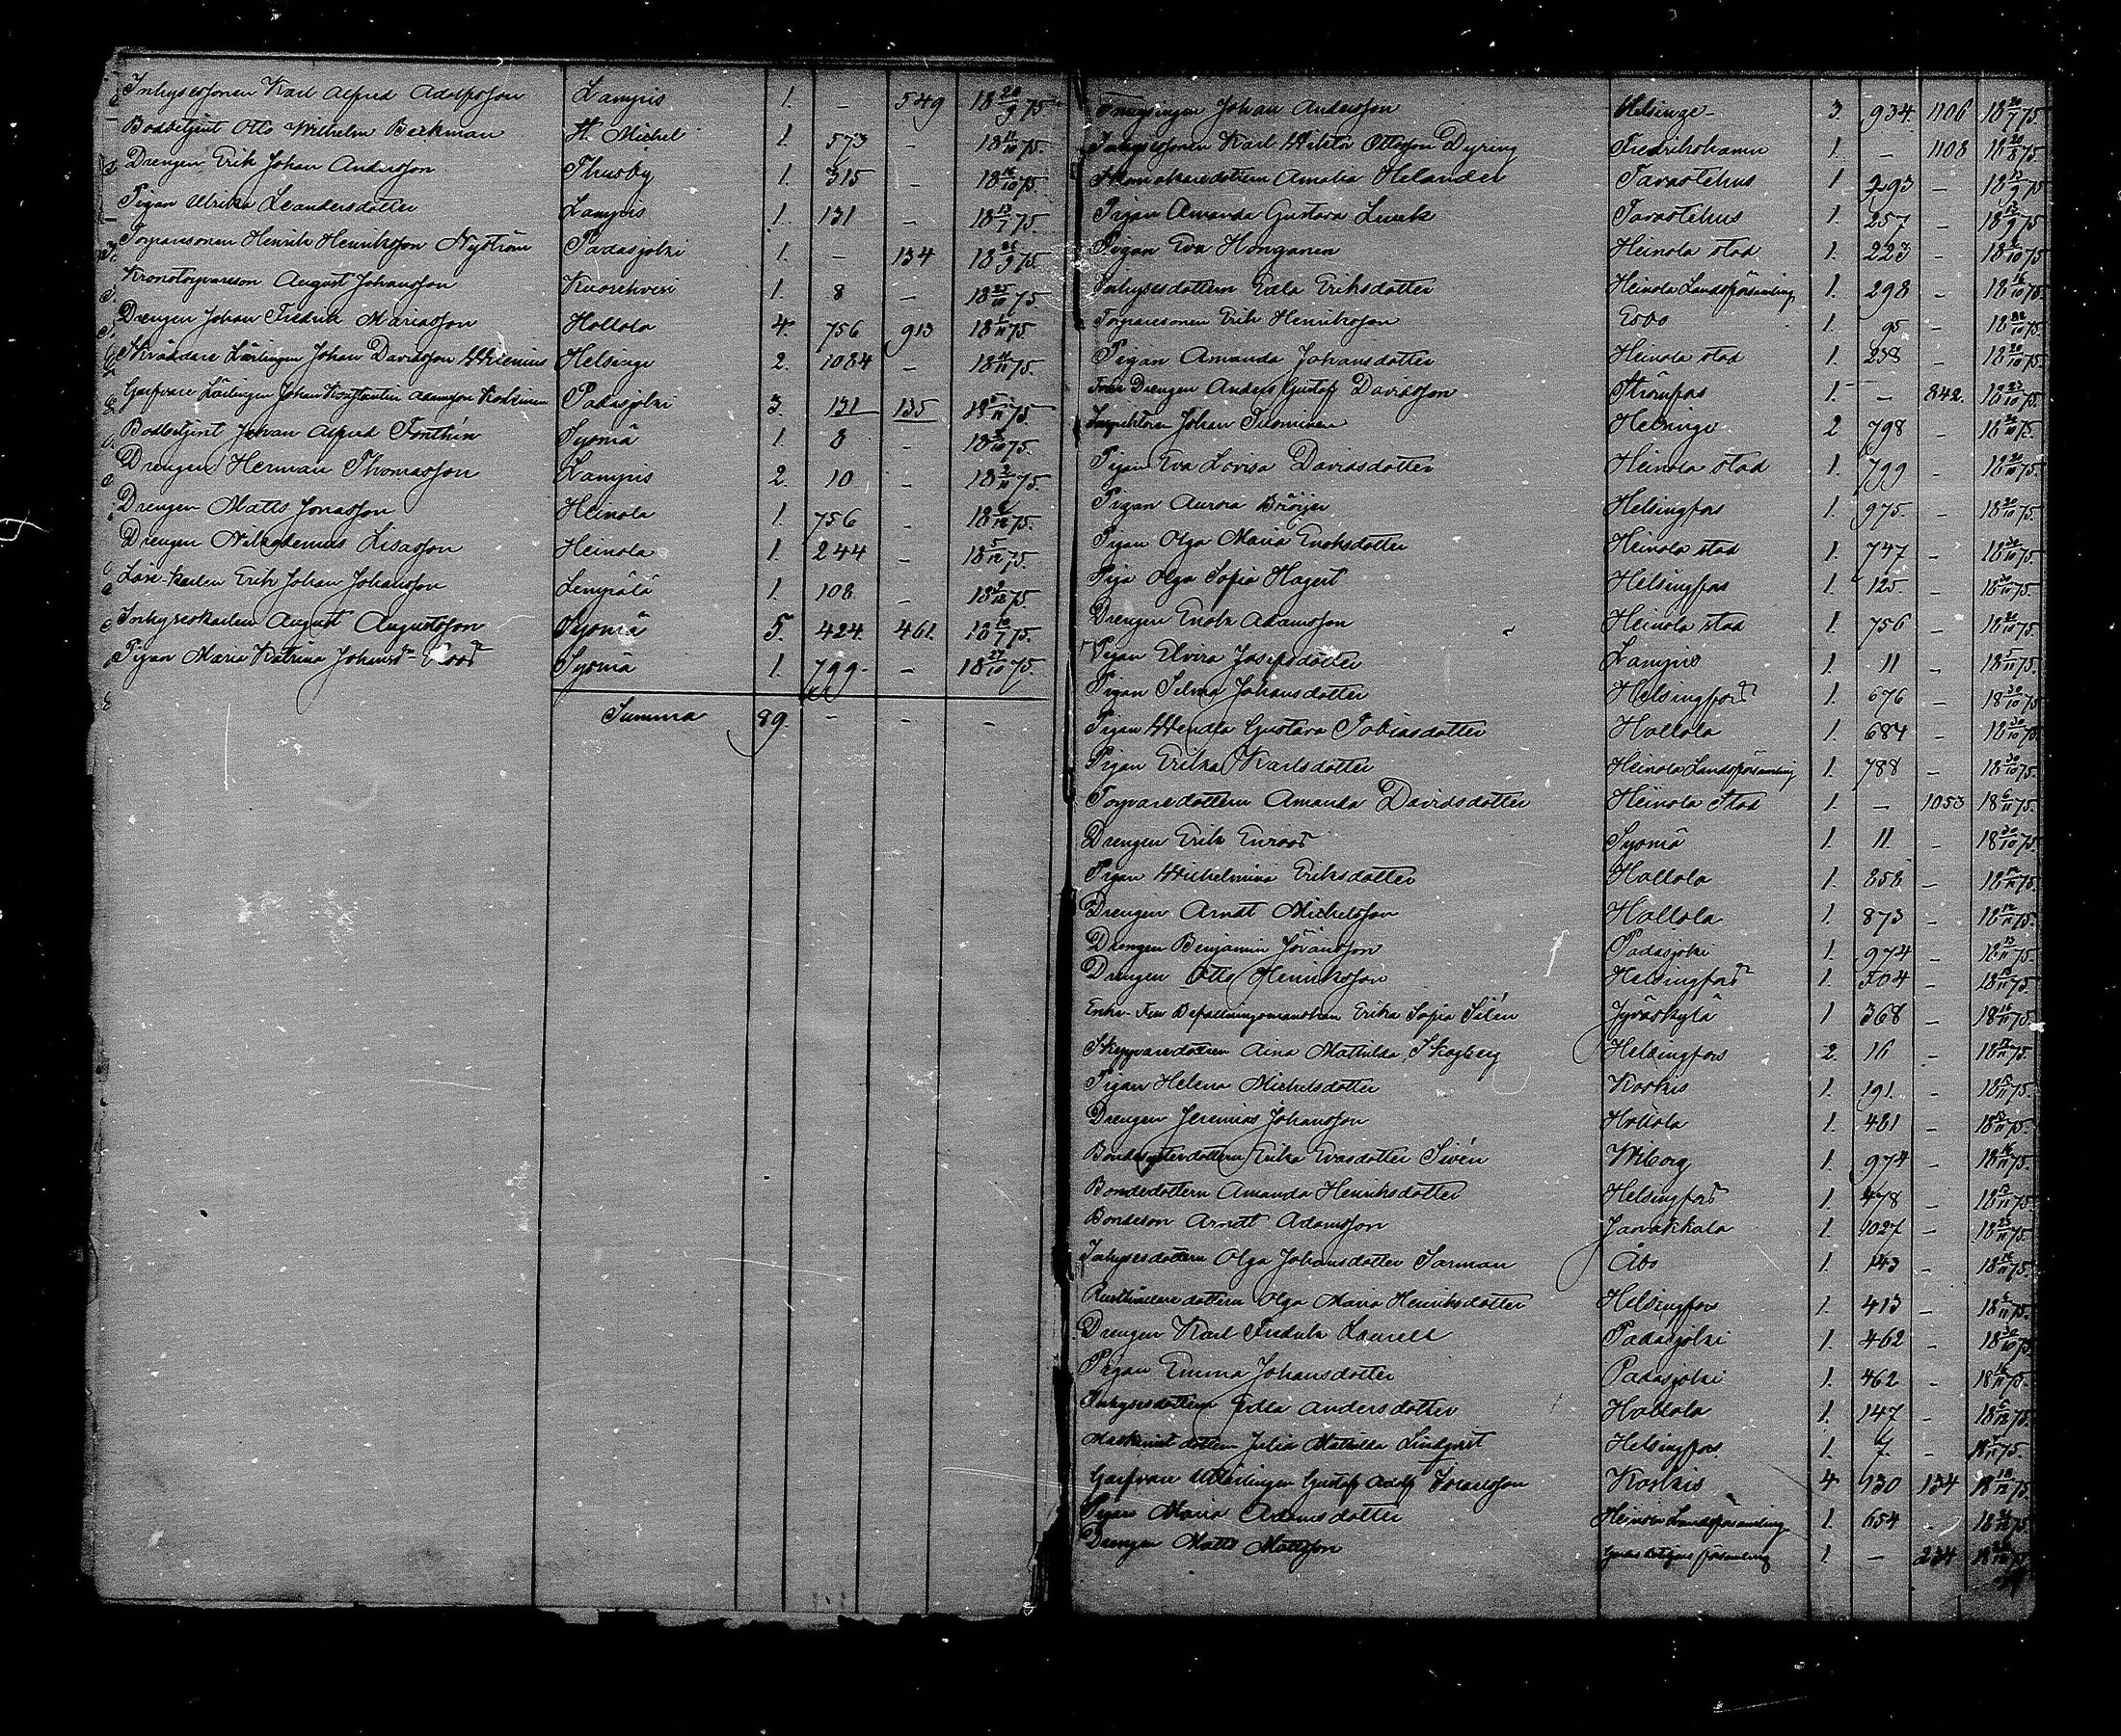 Inhysessonen Karl Alfred Adolfsson Lampis 1. - 549 18 20/9 75.
Bodbetjent Otto Wilhelm Berkman St. Michel 1. 573 - 18 75.
Drengen Erik Johan Andersson Thusby 1. 315 - 18 16/10 75.
Pigan Ulrika Leandersdotter Lampis 1. 131 - 18 13/7 75.
Torparesonen Henrik Henriksson Nyström Padasjoki 1. - 134 18 26/9 75.
Kronotorpareson August Johansson Kuorehvesi 1. 8 - 18 25/10 75
Drengen Johan Fredrik Mariasson Hollola 4. 756 913 18 75.
Skräddare Lärlingen Johan Davidsson Helsinge 2. 1084 - 18 75.
Garfvare Lärlingen Johan Konstantin Adamsson Padasjoki 3. 131 135 18 75.
Bodbetjent Johan Alfred Fonthén Sysmä 1. 8 - 18 75.
Drengen Herman Thomasson Lampis 2. 10 - 18 75.
Drengen Matts Jonasson Heinola 1. 756 - 18 75.
Drengen Nikodemus Lisasson Heinola 1. 244 - 18 5/12 75.
Löse-karlen Erik Johan Johansson Lempälä 1. 108 - 18 75.
Inhyseskarlen August Augustsson Sysmä 5. 424. 461. 18 75.
Pigan Maria Katrina Johansdr Roos Sysmä 1. 799. - 18 27/10 75.
Summa 89. - - -
Johan Andersson Helsinge - 3. 934. 1106 18 75.
Inhysessonen Karl Wiktor Ottosson Dyring Fredrikshamn 1. - 1108 18 20/8 75.
Amalia Helander Tavastehus 1 293 - 18 13/9 75
Pigan Amanda Gustava Tavastehus 1. 257 - 18 75
Pigan Eva Honganen Heinola stad 1. 223 - 18 75
Inhysesdottern Edla Eriksdotter Heinola Landsförsamling 1. 298 - 18 16/10 75.
Torparesonen Erik Henriksson Esbo 1. 95 - 18 75.
Pigan Amanda Johansdotter Heinola stad 1. 238 - 18 20/10 75.
Drengen Anders Gustaf Davidsson Strömfors 1. - 842. 18 23/10 75.
Inspektoren Johan Tuominen Helsinge 2 798 - 18 75.
Pigan Eva Lovisa Davidsdotter Heinola stad 1. 799 - 18 75.
Pigan Aurora Bröijer Helsingfors 1. 975. - 18 20/10 75.
Pigan Olga Maria Enoksdotter Heinola stad 1. 747 - 18 75.
Piga Olga Sofia Hagert Helsingfors 1. 125. - 18 75.
Drengen Enok Adamsson Heinola stad 1. 756 - 18 75.
Pigan Elvira Josefsdotter Lampis 1. 11 - 18 75.
Pigan Selma Johansdotter Helsingfors 1. 676 - 18 30/10 75
Pigan Wendla Gustava Tobiasdotter Hollola 1. 684 - 18 30/10 75
Pigan Erika Karlsdotter Heinola Landsförsamling 1. 788 - 18 30/10 75.
Torparedottern Amanda Davidsdotter Heinola Stad 1. - 1053 18 6/11 75.
Drengen Erik Enroos Sysmä 1. 11. - 18 30/10 75.
Pigan Wilhelmina Eriksdotter Hollola 1. 858 - 18 75.
Drengen Arndt Michelsson Hollola 1. 873 - 18 75.
Drengen Benjamin Göransson Padasjoki 1. 974 - 18 75.
Drengen Otto Henriksson Helsingfors 1. 504 - 18 75.
Enke-Fru Befallningsmanskan Erika Sofia Silén Jyväskylä 1 368 - 18 75.
Skepparedottren Aina Mathilda Skogberg Helsingfors 2. 16 - 18 75.
Pigan Helena Michelsdotter Koskis 1. 191. - 18 75.
Drengen Jeremias Johansson Hollola 1. 481 - 18 75.
Erika Evasdotter Sivén Wiborg 1. 974 - 18 75.
Bondedottern Amanda Henriksdotter Helsingfors 1. 478 - 18 75.
Bondeson Arndt Adamsson Janakkala 1. 1027 - 18 75.
Inhysesdottern Olga Johansdotter Sarman Åbo 1. 143 - 18 75.
Rusthållaredottern Olga Maria Henriksdotter Helsingfors 1. 413 - 18 75.
Drengen Karl Fredrik Laurell Padasjoki 1. 462 - 18 30/10 75
Pigan Emma Johansdotter Padasjoki 1. 462 - 18 75.
Inhysesdottern Edla Andersdotter Hollola 1. 147 - 18 75.
Maskinistdottern Julia Mathilda Lindqvist Helsingfors 1. 7. - 18 75.
Garfvare Gustaf Adolf Koskis 4 130 134 18 75.
Pigan Maria Adamsdotter Heinola Landsförsamling 1. 654 - 18 75.
Drengen Matts Mattsson församling 1. - 234 18 75.